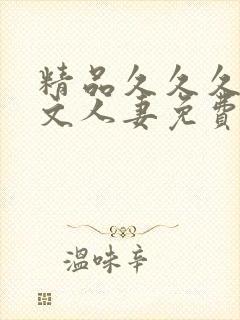 精品久久久
文人妻免費
溫味辛